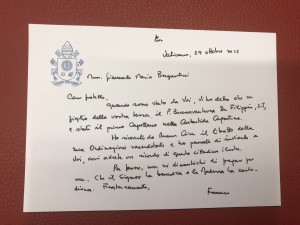 Vaticano, 29 ottobre 2018
Mons. Giancarlo Maria Bregantini
Caro fratello,
Quando sono stato da voi, vi ho detto che un
figlio della vostra terra, il P. Buonaventura De Filippis, SJ,
è stato il primo Cappellano nella Antartide Argentina.
Ho ricevuto da Buenos Aires il libretto della
sua Ordinazione sacerdotale e ho pensato di inviarlo a
voi, così avrete un ricordo di questo cittadino illustre.
Per favore, non si dimentichi di pregare per
me. Che il Signore La benedica e la Madonna La custo-
disca. Fraternamente,
Francesco